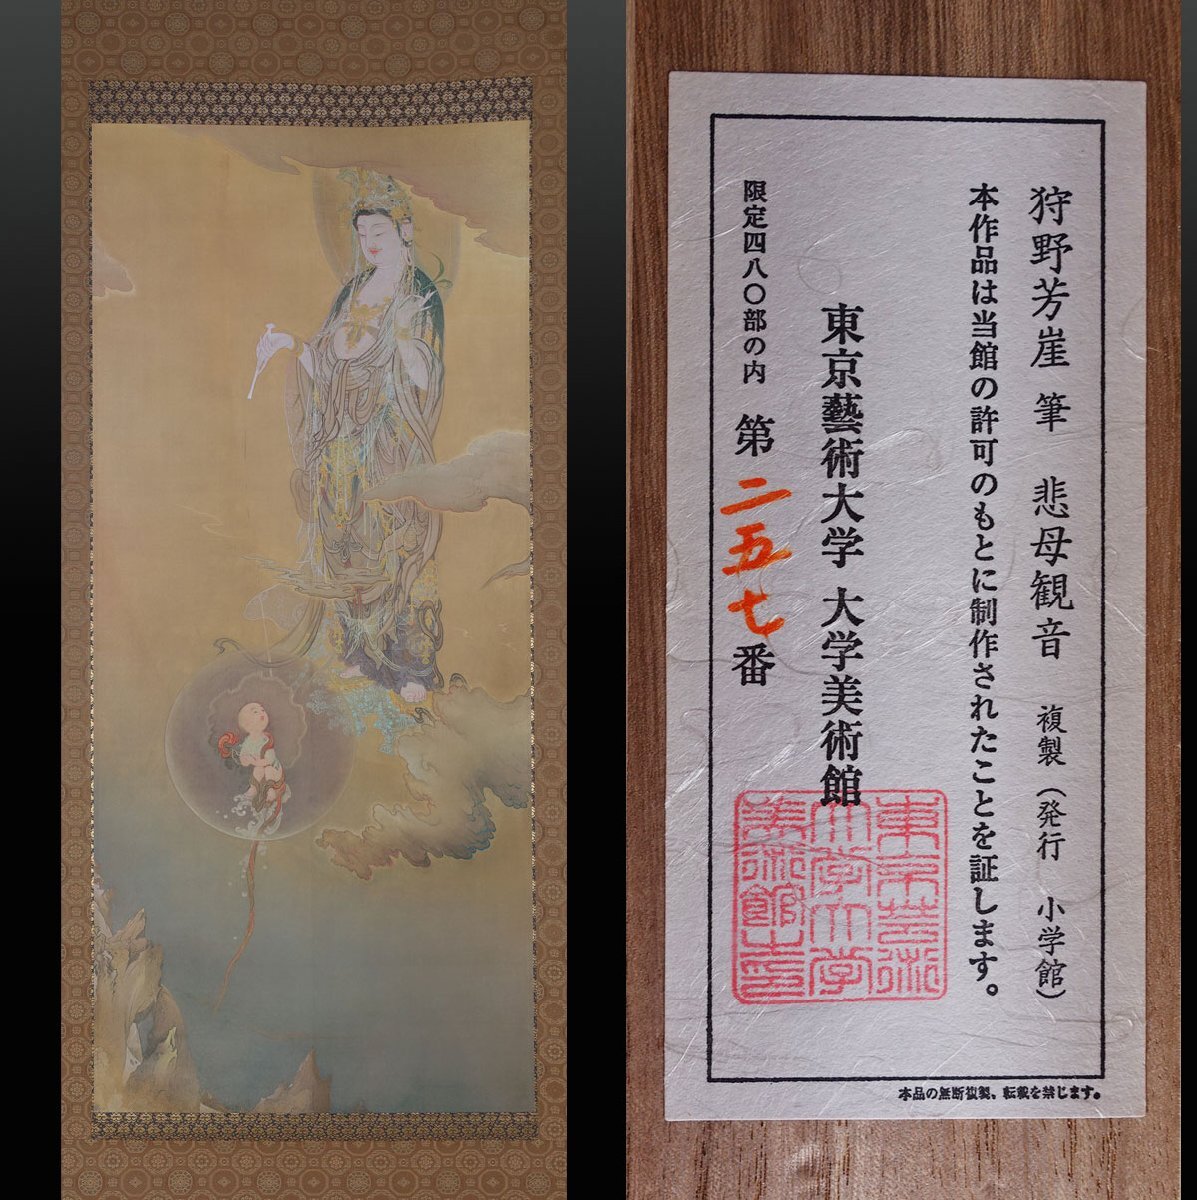 狩野芳崖 筆 悲母観音 複製（発行 小学館）
本作品は当館の許可のもとに制作されたことを証します。
東京藝術大学 大学美術館
限定四八〇部の内 第二五七番
東京芸術
大学大学
美術館之印
本品の無断複製、転載を禁じます。